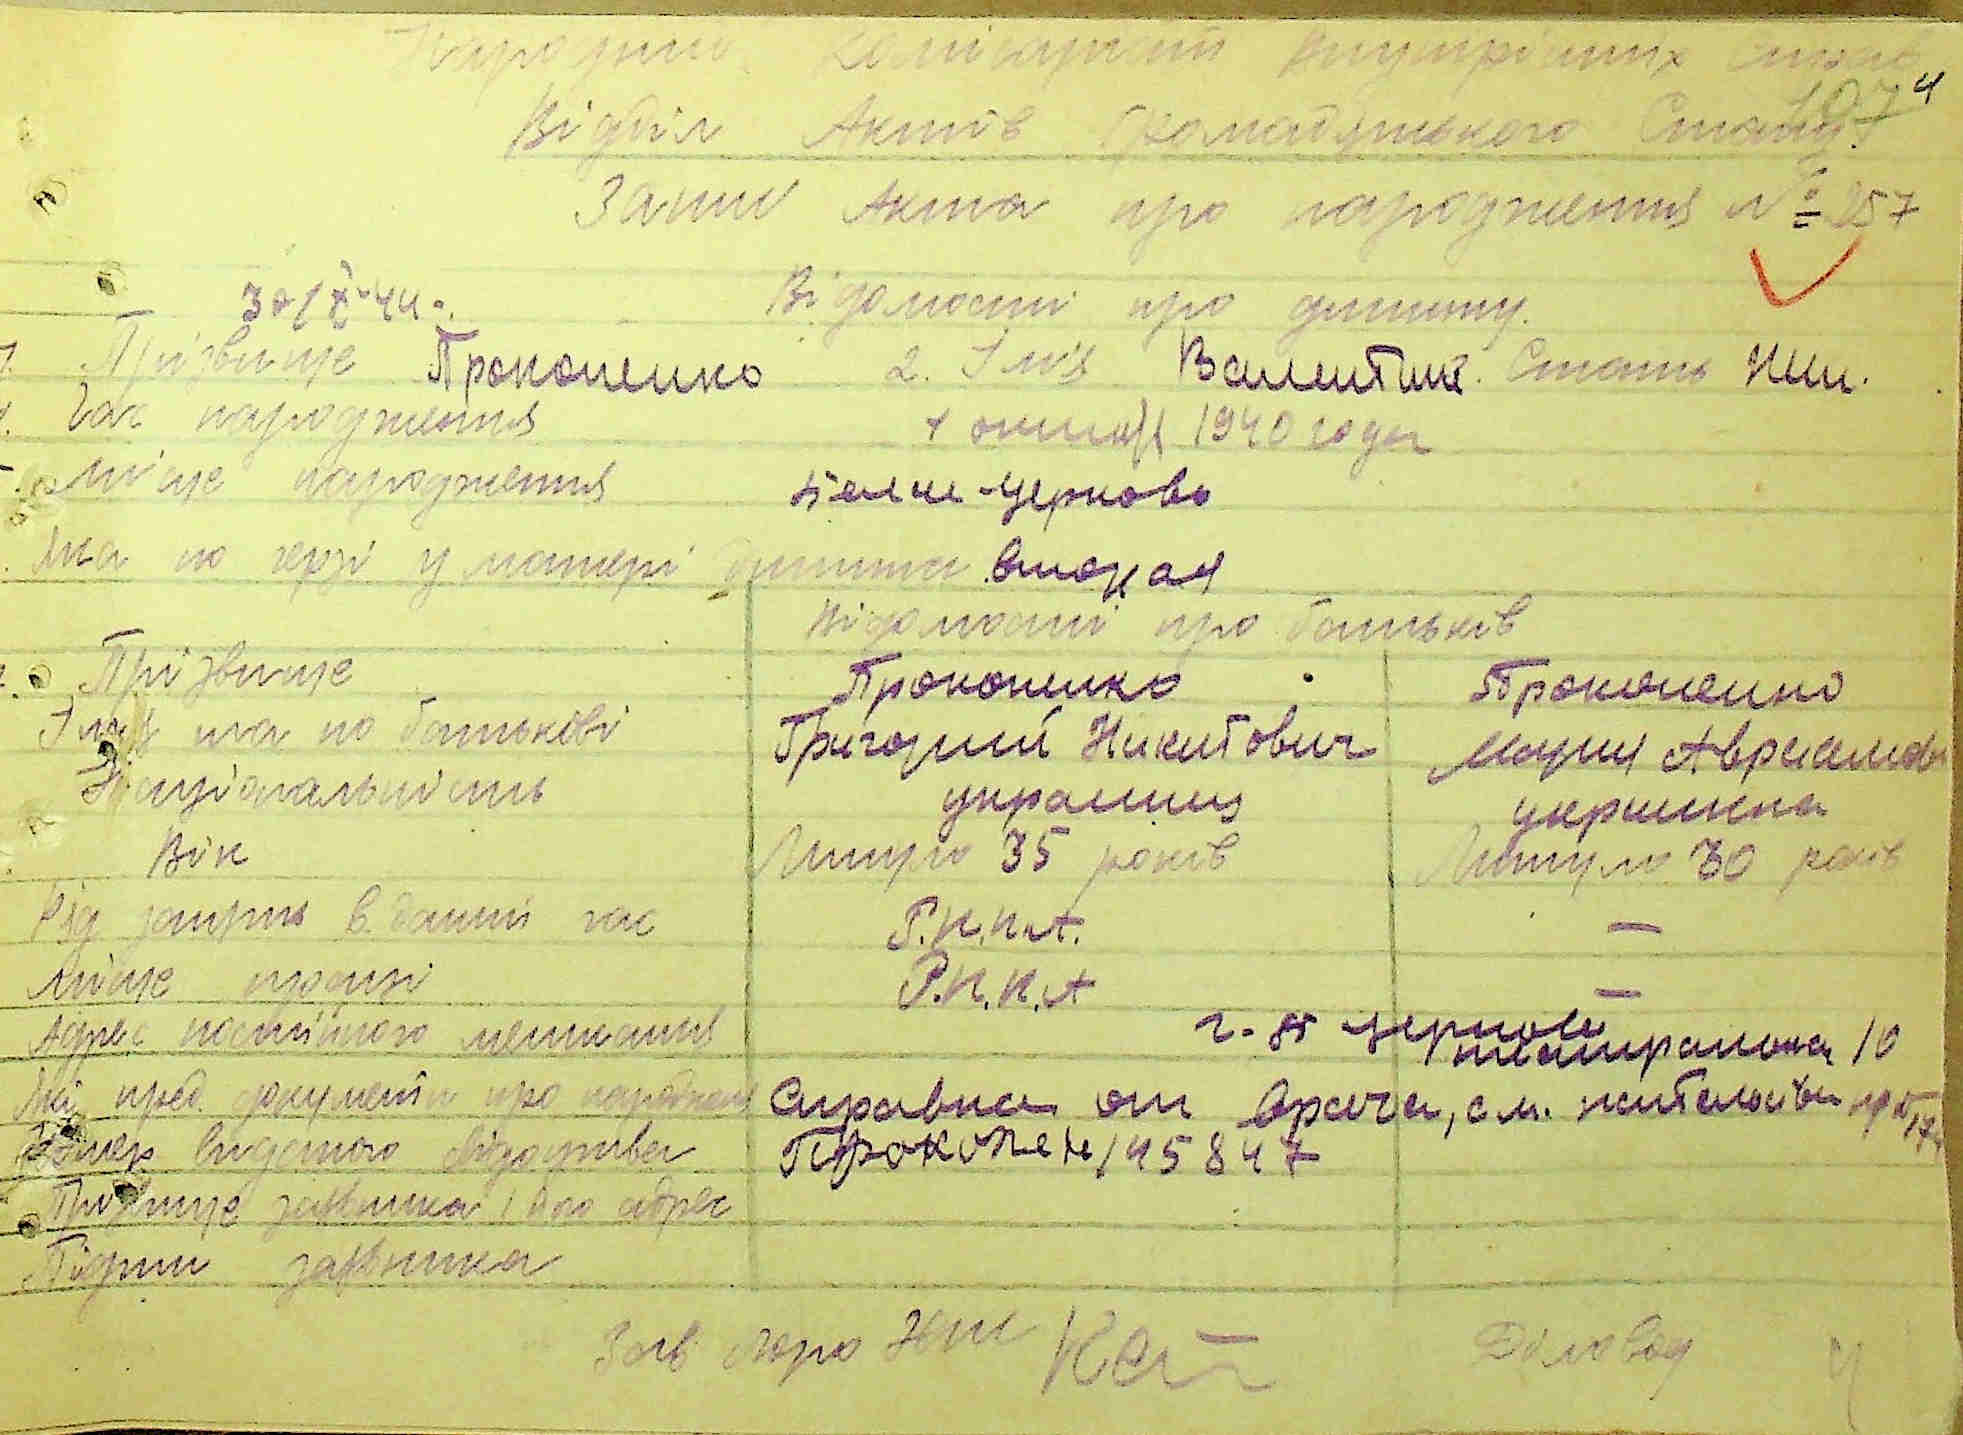 Народний Комісаріат Внутрішніх Справ
197 4
Відділ Актів Громадянського Стану
Запис Акта про народження № 257
30/X-44.
Відомості про дитину.
Прізвище Прокопенко 2. Імя Валентина. Стать Жін.
Час народження 1 октября 1940 года
Місце народження Белая-Церковь
Яка по черзі у матері дитина вторая
Відомості про батьків
Прізвище Прокопенко Прокопенко
Імя та по батькові Григорий Никитович Мария Аврамовн
Національність украинец украинка
Вік Минуло 35 років Минуло 30 років
Рід занять в даний час Р.К.К.А. —
Місце праці Р.К.К.А —
Адрес постійного мешкання г. Б Церковь 10
Які пред. документи про народжен Справка от врача, см.
видатого Прокопен 145847
Прізвище заявника і його адрес
Підпис заявника
Зав бюро ЗАГС Діловод